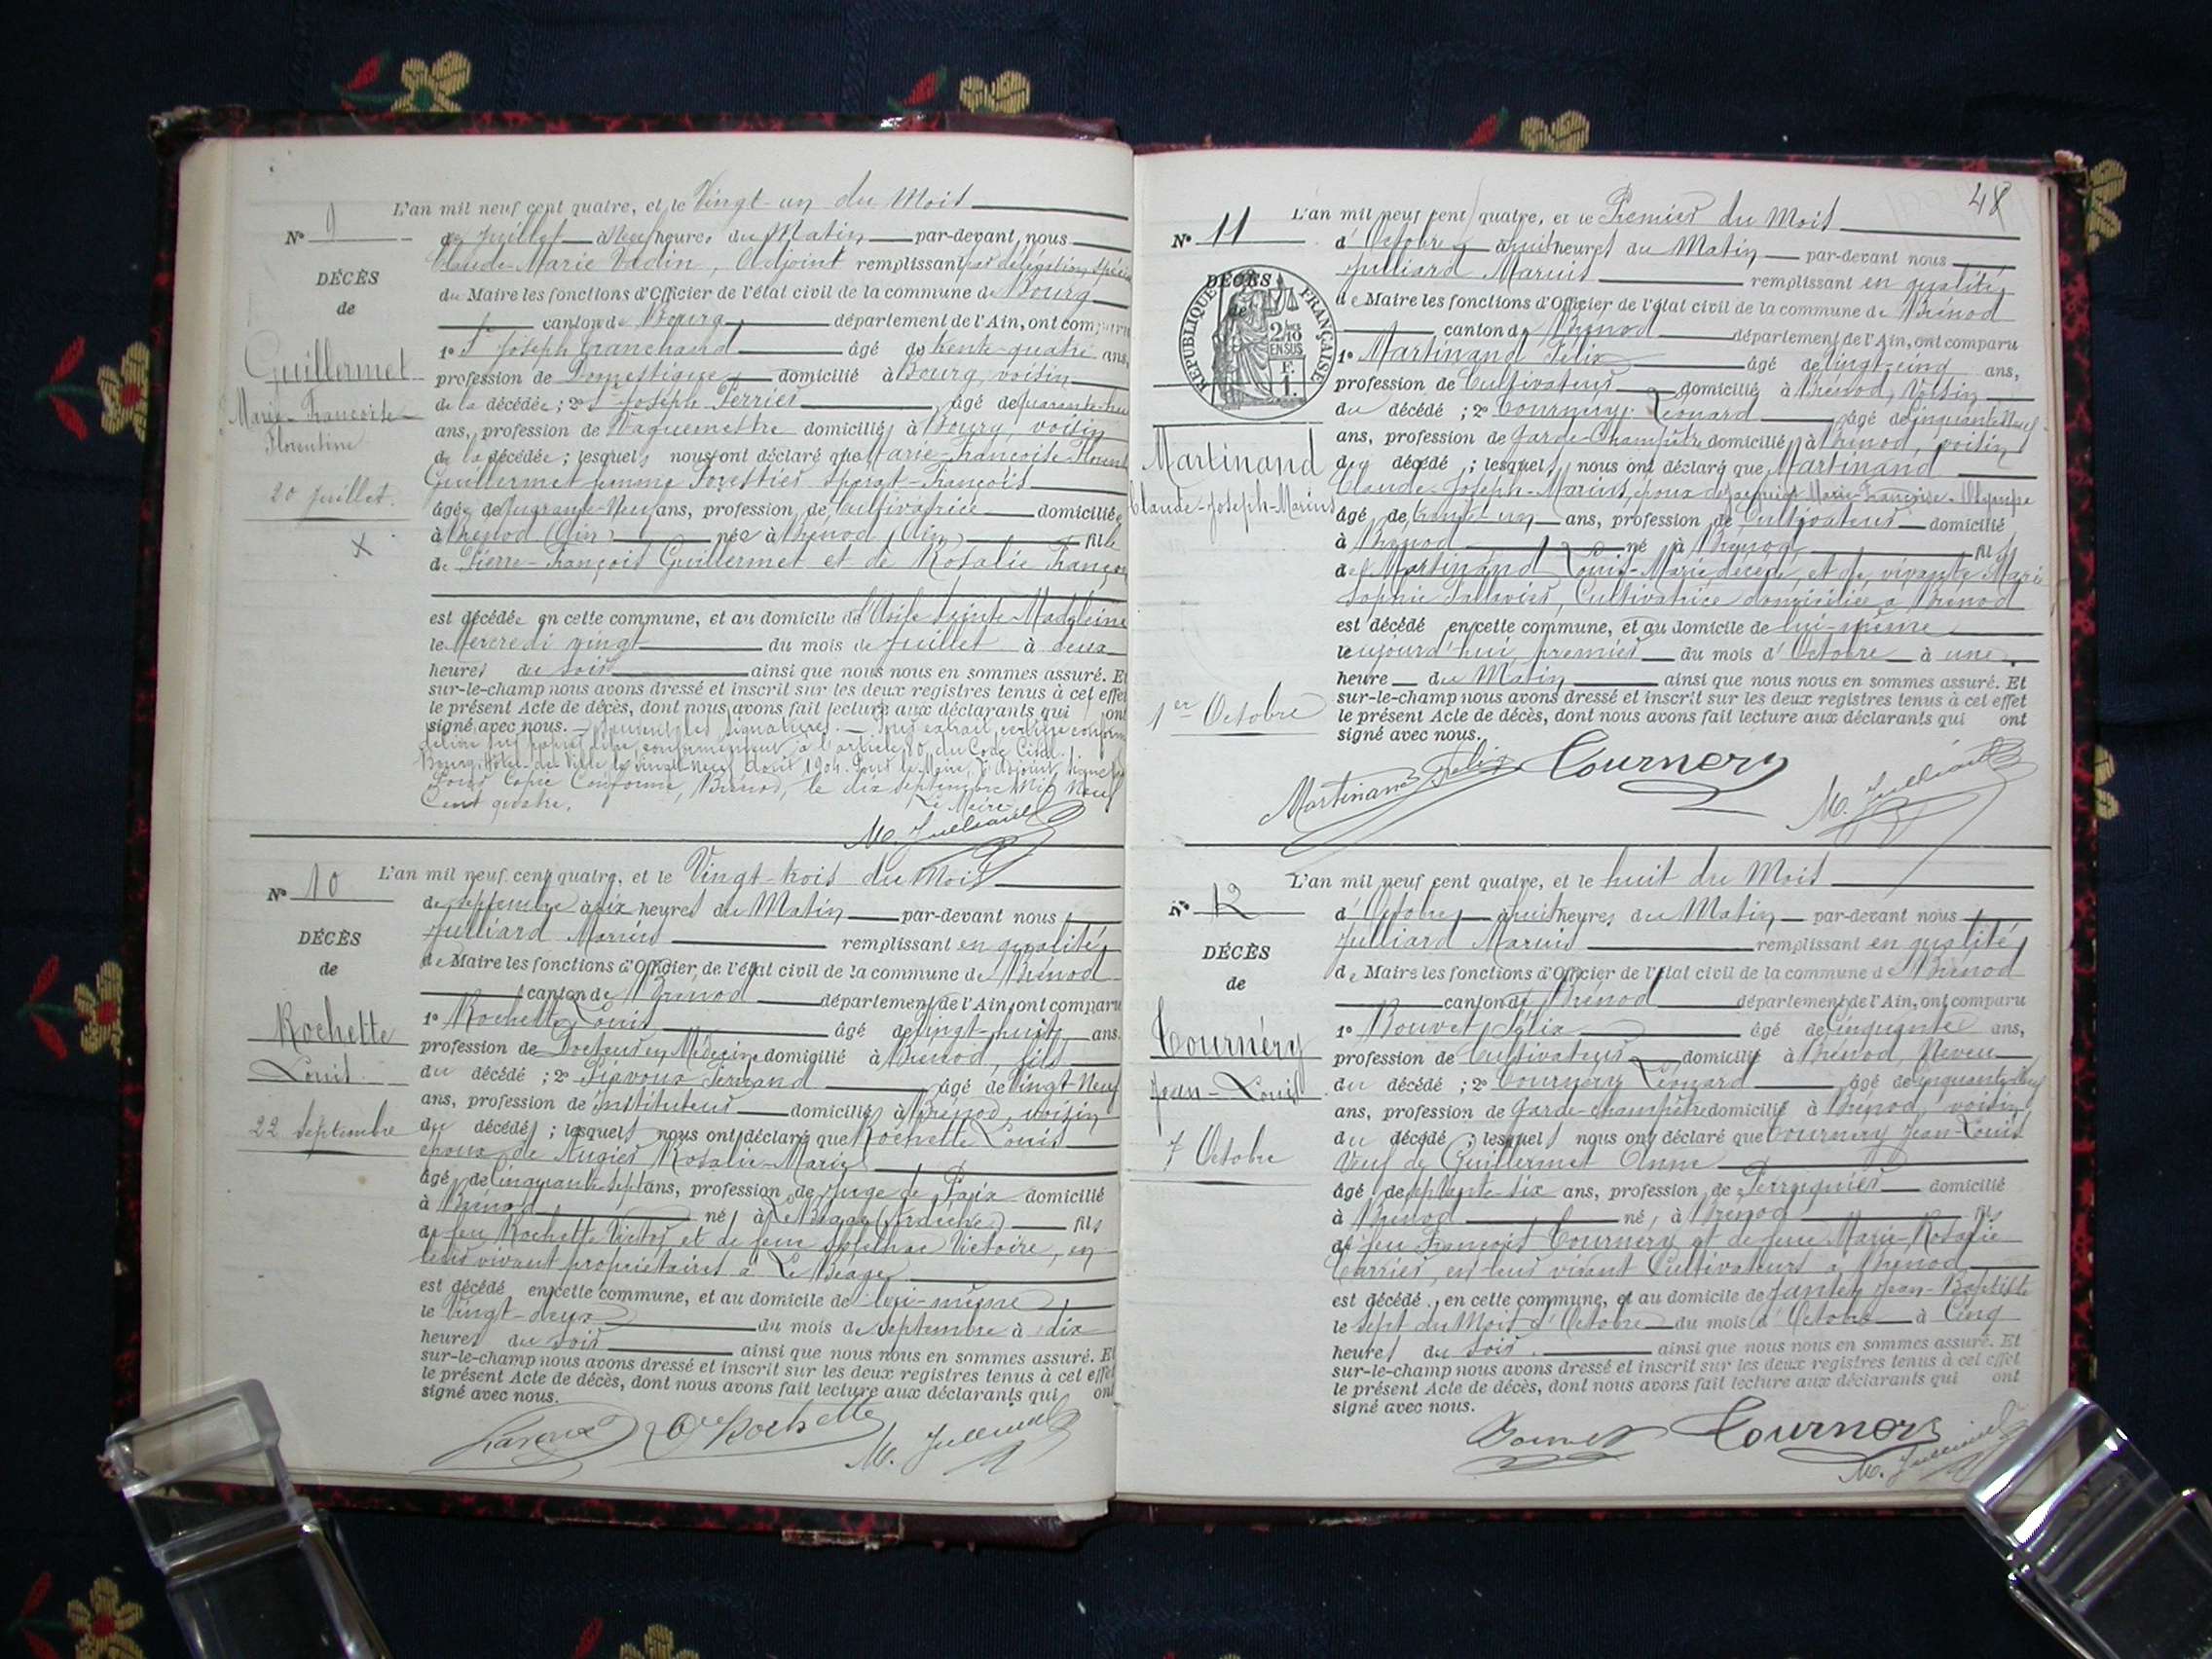 L'an mil neuf cent quatre, et le Vingt-un du Mois
N° 9
de Juillet à Neuf heures du Matin par-devant nous
Claude-Marie Vadin, Adjoint remplissant par délégation spéciale
DÉCÈS
du Maire les fonctions d'Officier de l'état civil de la commune de Bourg
de
canton de Bourg département de l'Ain, ont comparu
1° Sr Joseph Tranchand âgé de trente-quatre ans,
Guillermet
profession de Domestique domicilié à Bourg, voisin
Marie-Françoise-
de la décédée; 2° Sr Joseph Perrier âgé de quarante-huit
Florentine
ans, profession de Vaguemestre domiciliés à Bourg, voisin
de la décédée; lesquels nous ont déclaré que Marie-Françoise-Florent
Guillermet femme Forestier François
20 Juillet.
âgée de quarante-Neuf ans, profession de Cultivatrice domiciliée
à Brénod (Ain) née à Brénod (Ain) fille
X
de Pierre-François Guillermet et de Rosalie Françon
est décédée en cette commune, et au domicile de l'Asile Sainte-Madeleine
le Mercredi vingt du mois de Juillet à deux
heures du soir ainsi que nous nous en sommes assuré. Et
sur-le-champ nous avons dressé et inscrit sur les deux registres tenus à cet effet
le présent Acte de décès, dont nous avons fait lecture aux déclarants qui ont
signé avec nous. Suivent les signatures. Pour extrait certifié conforme
délivré sur papier libre conformément à l'article 80 du Code Civil.
Bourg, Hôtel-de-Ville le vingt-neuf Août 1904. Pour le Maire, l'adjoint, signé
Pour Copie Conforme, Brénod, le dix septembre Mil Neuf
Cent quatre.
Le Maire
M. Julliard
L'an mil neuf cent quatre, et le Vingt-trois du Mois
N° 10
de septembre à six heures du Matin par-devant nous
Julliard Marius remplissant en qualité
DÉCÈS
de Maire les fonctions d'Officier de l'état civil de la commune de Brénod
de
canton de Brénod département de l'Ain, ont comparu
Rochette
1° Rochette Louis âgé de vingt-huit ans.
profession de Docteur en Médecine domicilié à Brénod, fils
Louis
du décédé; 2° Siavoux Fernand âgé de vingt-Neuf
ans, profession de Instituteur domiciliés à Brénod, voisin
22 septembre
du décédé; lesquels nous ont déclaré que Rochette Louis
époux de Augier Rosalie-Marie
âgé de cinquante-sept ans, profession de Juge de Paix domicilié
à Brénod né à Le Béage (Ardèche) fils
de feu Rochette Victor et de feue Victoire, en
leur vivant propriétaires à Le Béage
est décédé en cette commune, et au domicile de lui-même
le Vingt-deux du mois de septembre à dix
heures du soir ainsi que nous nous en sommes assuré. Et
sur-le-champ nous avons dressé et inscrit sur les deux registres tenus à cet effet
le présent Acte de décès, dont nous avons fait lecture aux déclarants qui ont
signé avec nous.
Dr Rochette M. Julliard
48
L'an mil neuf cent quatre, et le Premier du Mois
N° 11
d'Octobre à huit heures du Matin par-devant nous
Julliard Marius remplissant en qualité
DÉCÈS
de
RÉPUBLIQUE FRANÇAISE
2/10 EN SUS
de Maire les fonctions d'Officier de l'état civil de la commune de Brénod
canton de Brénod département de l'Ain, ont comparu
1° Martinand Félix âgé de Vingt-cinq ans,
profession de Cultivateur domicilié à Brénod, Voisin
du décédé; 2° Cournéry Léonard âgé de cinquante-Neuf
ans, profession de Garde-Champêtre domiciliés à Brénod, voisin
Martinand
du décédé; lesquels nous ont déclaré que Martinand
Claude-Joseph-Marius
Claude-Joseph-Marius, époux de Marie-Françoise-Olympe
âgé de trente-un ans, profession de Cultivateur domicilié
à Brénod né à Brénod fils
de Martinand Louis-Marie décédé, et de vivante Marie
Sophie, Cultivatrice domiciliée à Brénod
est décédé en cette commune, et au domicile de lui-même
le aujourd'hui premier du mois d'Octobre à une
heure du Matin ainsi que nous nous en sommes assuré. Et
1er Octobre
sur-le-champ nous avons dressé et inscrit sur les deux registres tenus à cet effet
le présent Acte de décès, dont nous avons fait lecture aux déclarants qui ont
signé avec nous.
Martinand Félix Cournery M. Julliard
L'an mil neuf cent quatre, et le huit du Mois
N° 12
d'Octobre à huit heures du Matin par-devant nous
Julliard Marius remplissant en qualité
DÉCÈS
de Maire les fonctions d'Officier de l'état civil de la commune de Brénod
de
canton de Brénod département de l'Ain, ont comparu
1° Bouvet Félix âgé de Cinquante ans,
Cournéry
profession de Cultivateur domicilié à Brénod, Neveu
Jean-Louis
du décédé; 2° Cournéry Léonard âgé de cinquante-Neuf
ans, profession de Garde-champêtre domiciliés à Brénod, voisin
du décédé; lesquels nous ont déclaré que Cournéry Jean-Louis
7 Octobre
Veuf de Guillermet Anne
âgé de septante-six ans, profession de Perruquier domicilié
à Brénod né à Brénod fils
de feu François Cournéry et de feue Marie-Rosalie
Carrier, en leur vivant Cultivateurs à Brénod
est décédé en cette commune, et au domicile de Jean-Baptiste
le sept du Mois d'Octobre du mois d'Octobre à Cinq
heures du soir. ainsi que nous nous en sommes assuré. Et
sur-le-champ nous avons dressé et inscrit sur les deux registres tenus à cet effet
le présent Acte de décès, dont nous avons fait lecture aux déclarants qui ont
signé avec nous.
Bouvet Cournery M. Julliard